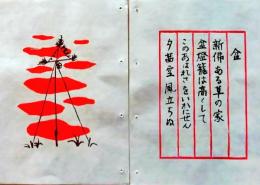 盆
新佛ある草の家
盆燈籠は高くして
このあはれさをいかにせん
夕茜雲風立ちぬ